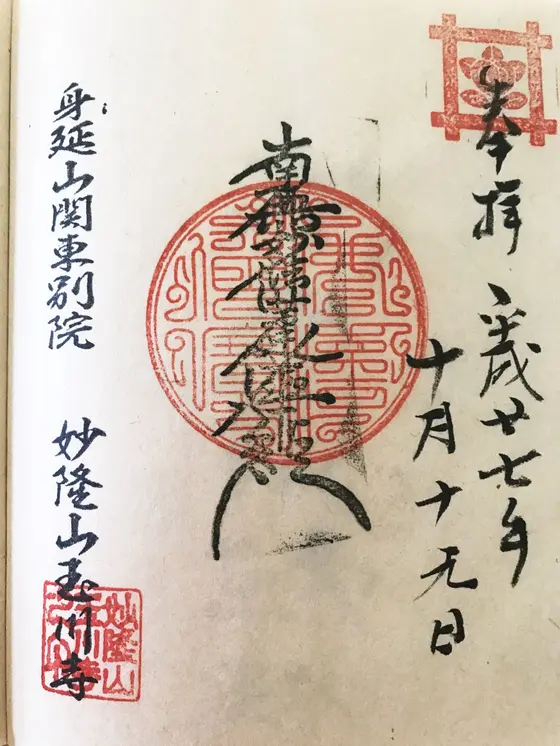 奉拝 平成廿七年
十月十 日
南無妙法蓮華経
身延山関東別院 妙隆山玉川寺
妙隆山